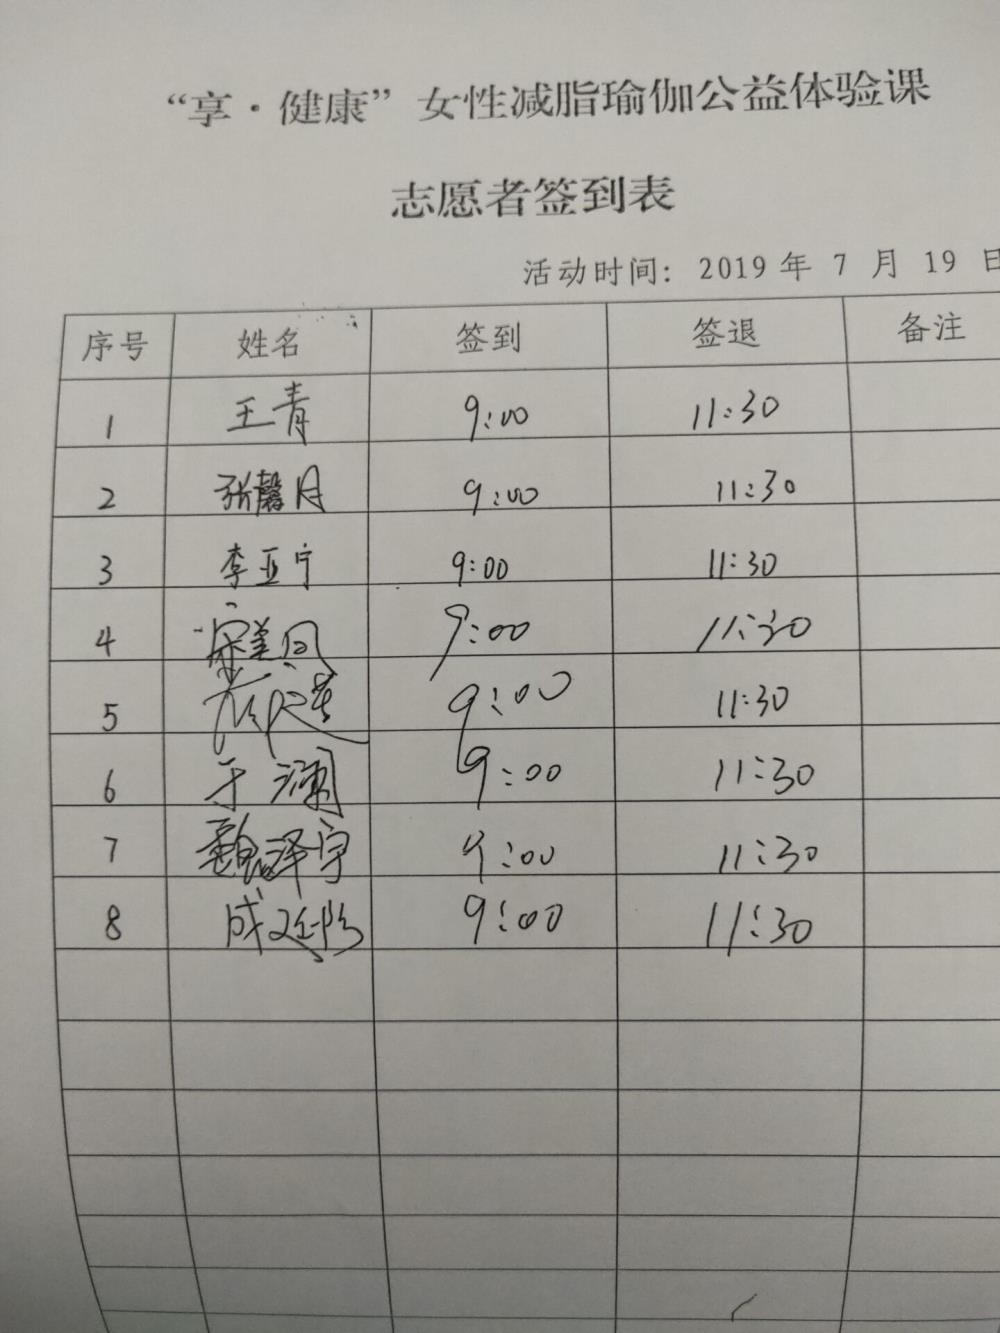 “享·健康”女性减脂瑜伽公益体验课
志愿者签到表
活动时间: 2019 年 7 月 19 日
序号 姓名 签到 签退 备注
1 王青 9:00 11:30
2 张馨月 9:00 11:30
3 李亚宁 9:00 11:30
4 宋美凤 9:00 11:30
5 9:00 11:30
6 于澜 9:00 11:30
7 魏泽宇 9:00 11:30
8 成廷 9:00 11:30